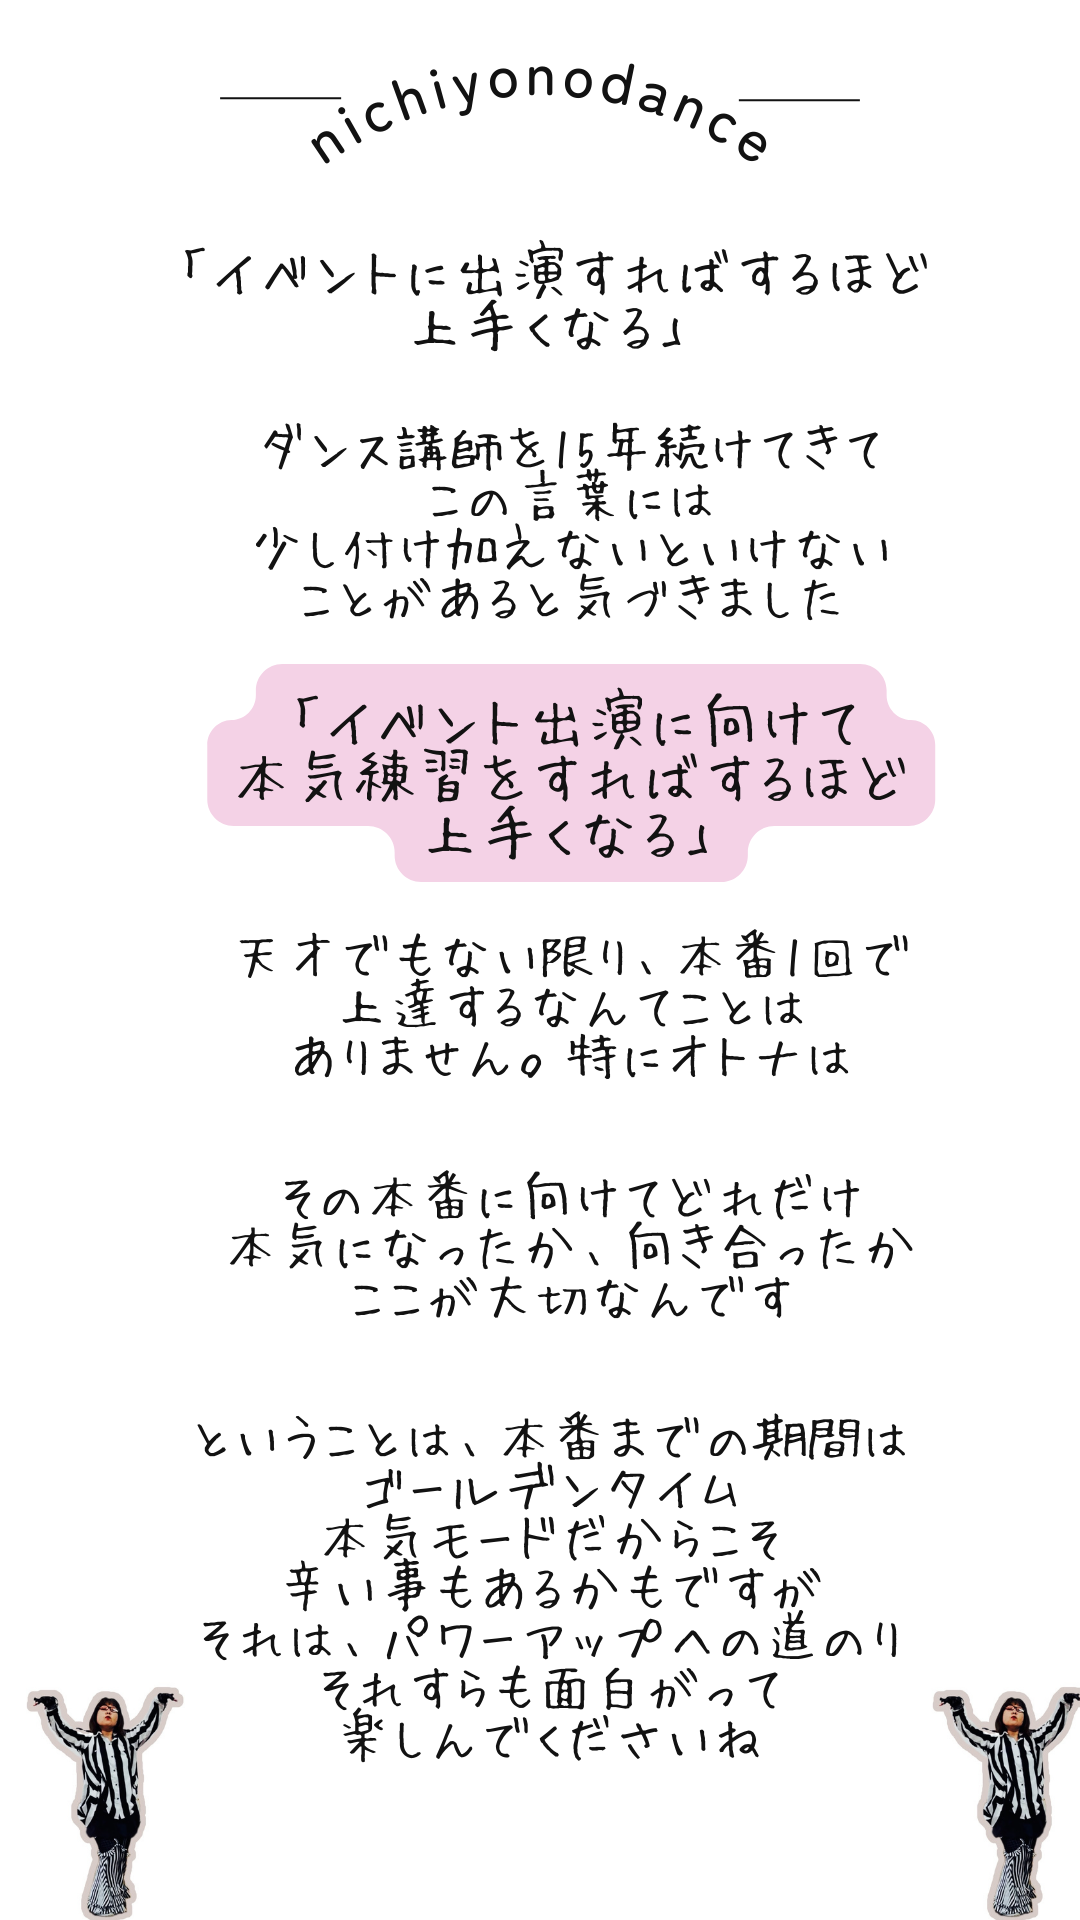 nichiyonodance
「イベントに出演すればするほど
上手くなる」
ダンス講師を15年続けてきて
この言葉には
少し付け加えないといけない
ことがあると気づきました
「イベント出演に向けて
本気練習をすればするほど
上手くなる」
天才でもない限り、本番1回で
上達するなんてことは
ありません。特にオトナは
その本番に向けてどれだけ
本気になったか、向き合ったか
ここが大切なんです
ということは、本番までの期間は
ゴールデンタイム
本気モードだからこそ
辛い事もあるかもですが
それは、パワーアップへの道のり
それすらも面白がって
楽しんでくださいね